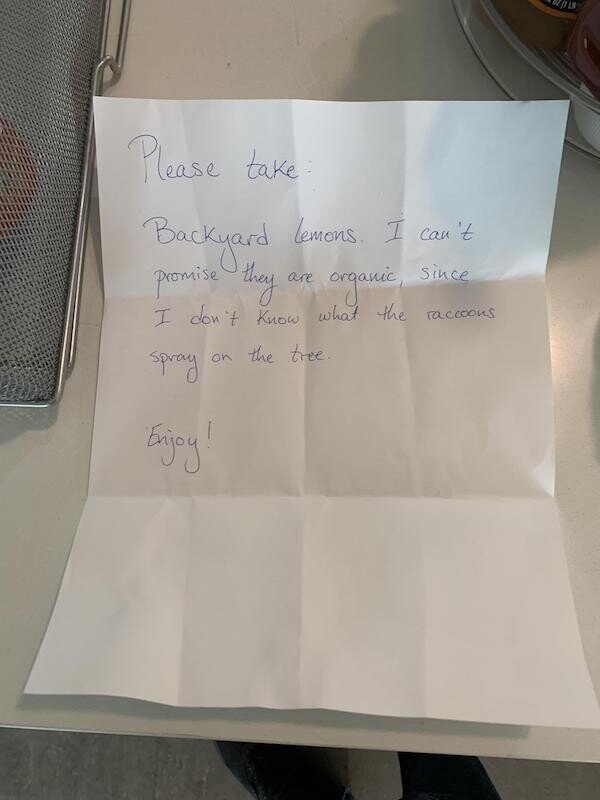 Please take:
Backyard lemons. I can't
promise they are organic, since
I don't know what the raccoons
spray on the tree.
Enjoy!